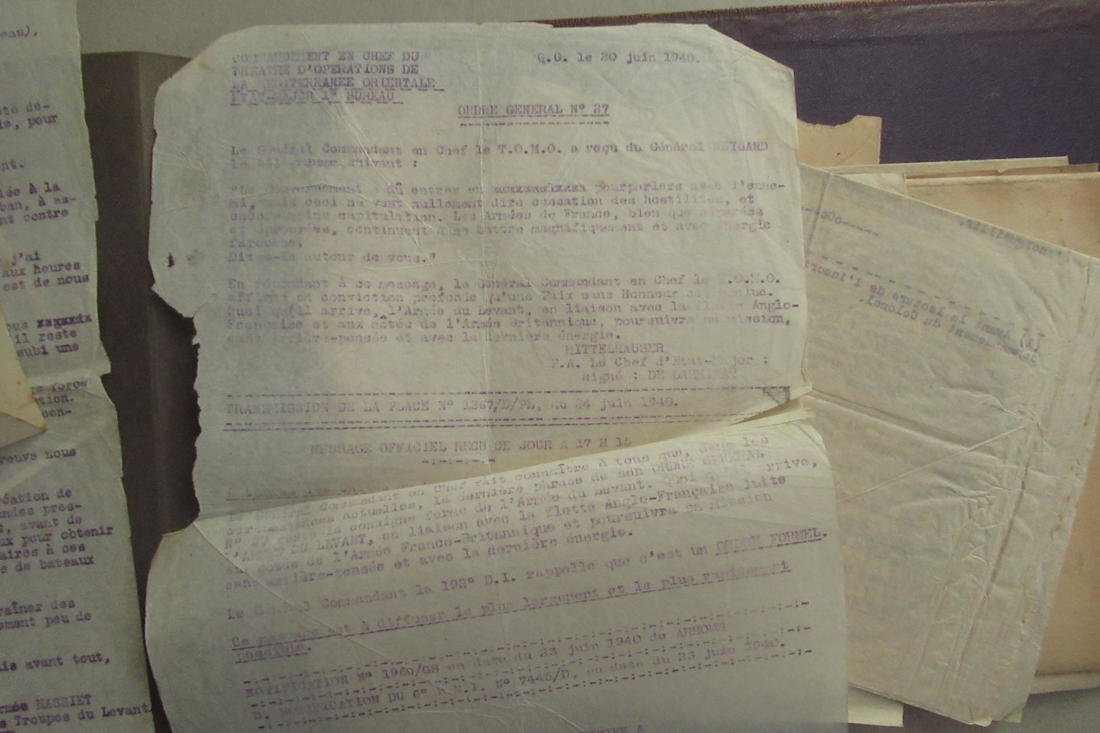 COMMANDEMENT EN CHEF DU
THEATRE D'OPERATIONS DE
LA MEDITERRANEE ORIENTALE
ETAT-MAJOR 1er BUREAU
Q.G. le 20 juin 1940.
ORDRE GENERAL N° 27
Le Général Commandant en Chef le T.O.M.O. a reçu du Général WEYGAND
le télégramme suivant :
"Le Gouvernement a dû entrer en pourparlers avec l'enne-
mi, mais ceci ne veut nullement dire cessation des hostilités, et
encore moins capitulation. Les Armées de France, bien que séparées
et éprouvées, continuent à se battre magnifiquement et avec énergie
farouche.
Dites-le autour de vous."
En répondant à ce message, le Général Commandant en Chef le T.O.M.O.
affirme sa conviction profonde qu'une Paix sans Honneur est exclue.
Quoi qu'il arrive, l'Armée du Levant, en liaison avec la Flotte Anglo-
Française et aux côtés de l'Armée Britannique, poursuivra sa mission,
sans arrière-pensée et avec la dernière énergie.
MITTELHAUSER
P.A. Le Chef d'Etat-Major :
signé : DE LARMINAT
TRANSMISSION DE LA PLACE N° 1267/D/PL, du 24 juin 1940.
MESSAGE OFFICIEL RECU CE JOUR A 17 H 15
Commandant en Chef fait connaître à tous que, dans les
circonstances actuelles, la dernière phrase de son ORDRE GENERAL
N° 27 reste la consigne ferme de l'Armée du Levant. Quoi qu'il arrive,
l'ARMEE DU LEVANT, en liaison avec la flotte Anglo-Française lutte
aux côtés de l'Armée Franco-Britannique et poursuivra sa mission
sans arrière-pensée et avec la dernière énergie.
Le Général Commandant la 192° D.I. rappelle que c'est un ORDRE FORMEL.
Ce message est à diffuser le plus largement et le plus rapidement
possible.
NOTIFICATION N° 1960/GS en date du 23 juin 1940 du
D. NOTIFICATION DU 6° R.E.I. N° 7445/D, en date du 23 juin 1940.
eau),
té dé-
ie, pour
nt.
iée à la
ban, à as-
nt contre
j'ai
aux heures
est de nous
ous xxxxxix
il reste
subi une
force
tion.
cen-
reuve nous
éation de
andes pres-
t, avant de
ux pour obtenir
aires à ces
e de bateaux
raîner des
ement peu de
is avant tout,
rmée MASSIET
s Troupes du Levant